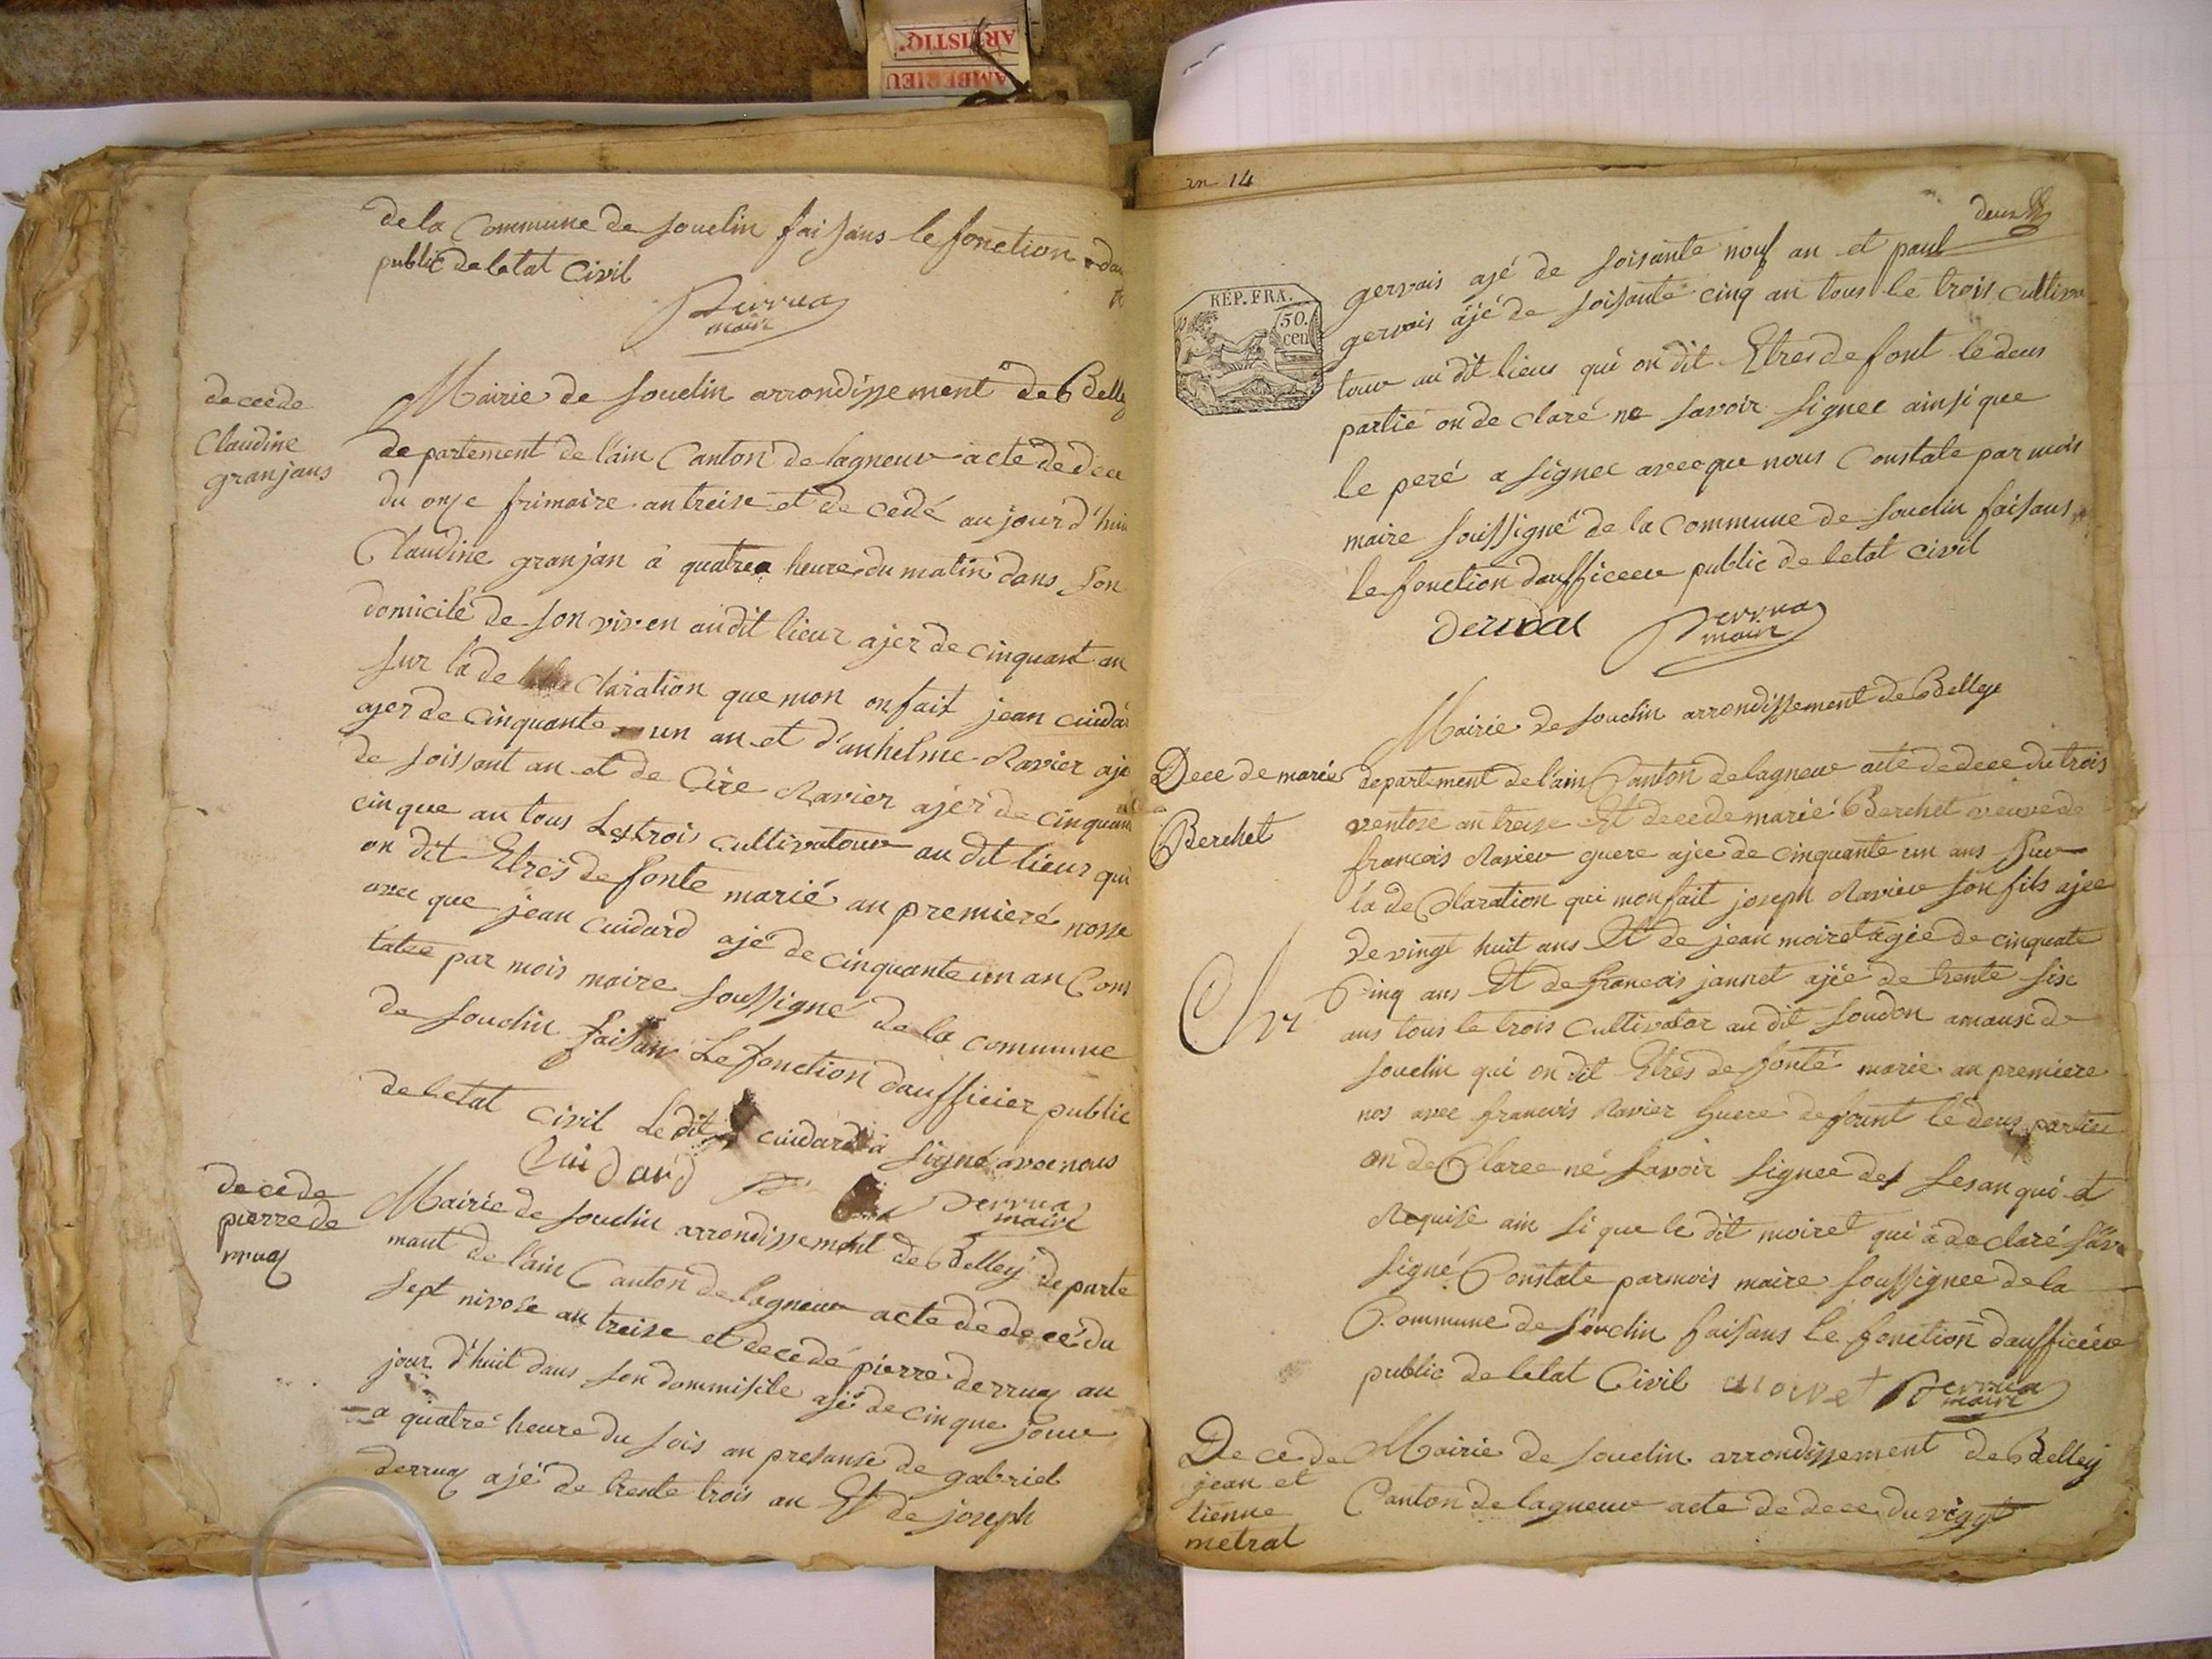 ARTISTIQ'
AMBERIEU
de la Commune de Souclin faisans le fonction
public de letat Civil
Derruaz
maire
decede
Claudine
granjans
Mairie de Souclin arrondissement de Belley
departement de l'ain Canton de lagneux acte de dece
du onze frimaire an treise et de cedé aujourd'hui
Claudine granjan à quatre heure du matin dans son
domicile de son viven audit lieux ajer de cinquant an
sur la de claration que mon onfait jean cuidar
ajer de cinquante un an et d'anhelme Ravier aje
de soissant an et de Cire Ravier ajer de cinquan
cinque an tous Les trois cultivatour au dit lieux qui
on dit Etres de fonte marié an premieré nosse
avec que jean Cuidard ajé de cinquante un an Cons
tatee par mois maire soussigné de la commune
de Souclin faisan Le fonction daufficier public
de letat civil Ledit cuidard à signé avec nous
Cuidard
Derrua
maire
decede
pierre de
rruaz
Mairie de Souclin arrondissement de Belley de parte
mant de l'ain Canton de lagneux acte de de cé du
sept nivose an treise et decedé pierre derruaz au
jour d'huit dans son dommisile ajé de cinque jour
a quatre heure du sois an presanse de gabriel
derruaz ajé de trente trois an Et de joseph
an 14
deux
RÉP. FRA.
50.
cen
gervais ajé de soisante nouf an et paul
gervais ajé de soisante cinq an tous le trois cultiva
tour au dit lieux qui on dit Etres de font le deus
partie on de claré ne savoir signer ainsi que
le peré a signer avec que nous Constate par mois
maire soussigné de la Commune de Souclin faisans
le fonction daufficeer public de letat civil
Derruaz
Derrua
maire
Mairie de Souclin arrondissement de Belley
Dece de marie
Berchet
departement de l'ain Canton de lagneux acte de dece du trois
ventose an treze Et decede marié Berchet veuve de
francois Ravier guere ajee de cinquante un ans Sur
la de Claration qui mon fait joseph Ravier son fils ajee
de vingt huit ans Et de jean moiret agée de cinquate
Cinq ans Et de francois jannet ajée de trente sisc
ans tous le trois Cultivator au dit Soudon
Souclin qui on dit Etres de fonté marie an premiere
nos avec francois Ravier Guere defount le deus partier
on de Claree né savoir signee des sesan qui et
Requise ain si que le dit moiret qui à de claré sav
signé Constate parmois maire soussignee de la
Commune de Souclin faisans le fonction daufficiere
public de letat Civil moiret Derrua
maire
De ce de
jean et
tienne
metral
Mairie de Souclin arrondissement de Belley
Canton de lagneux acte de dece du vingt